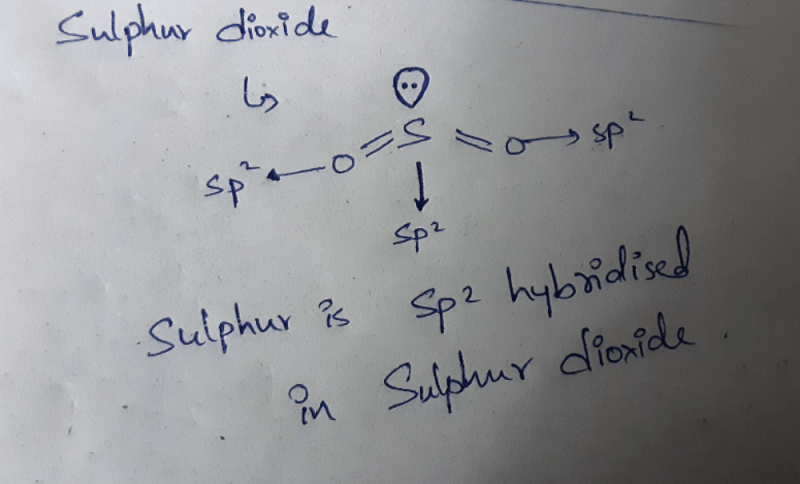 Sulphur dioxide
↳
O=S=O
sp² ← O → sp²
↓
sp²
Sulphur is sp² hybridised
in Sulphur dioxide.